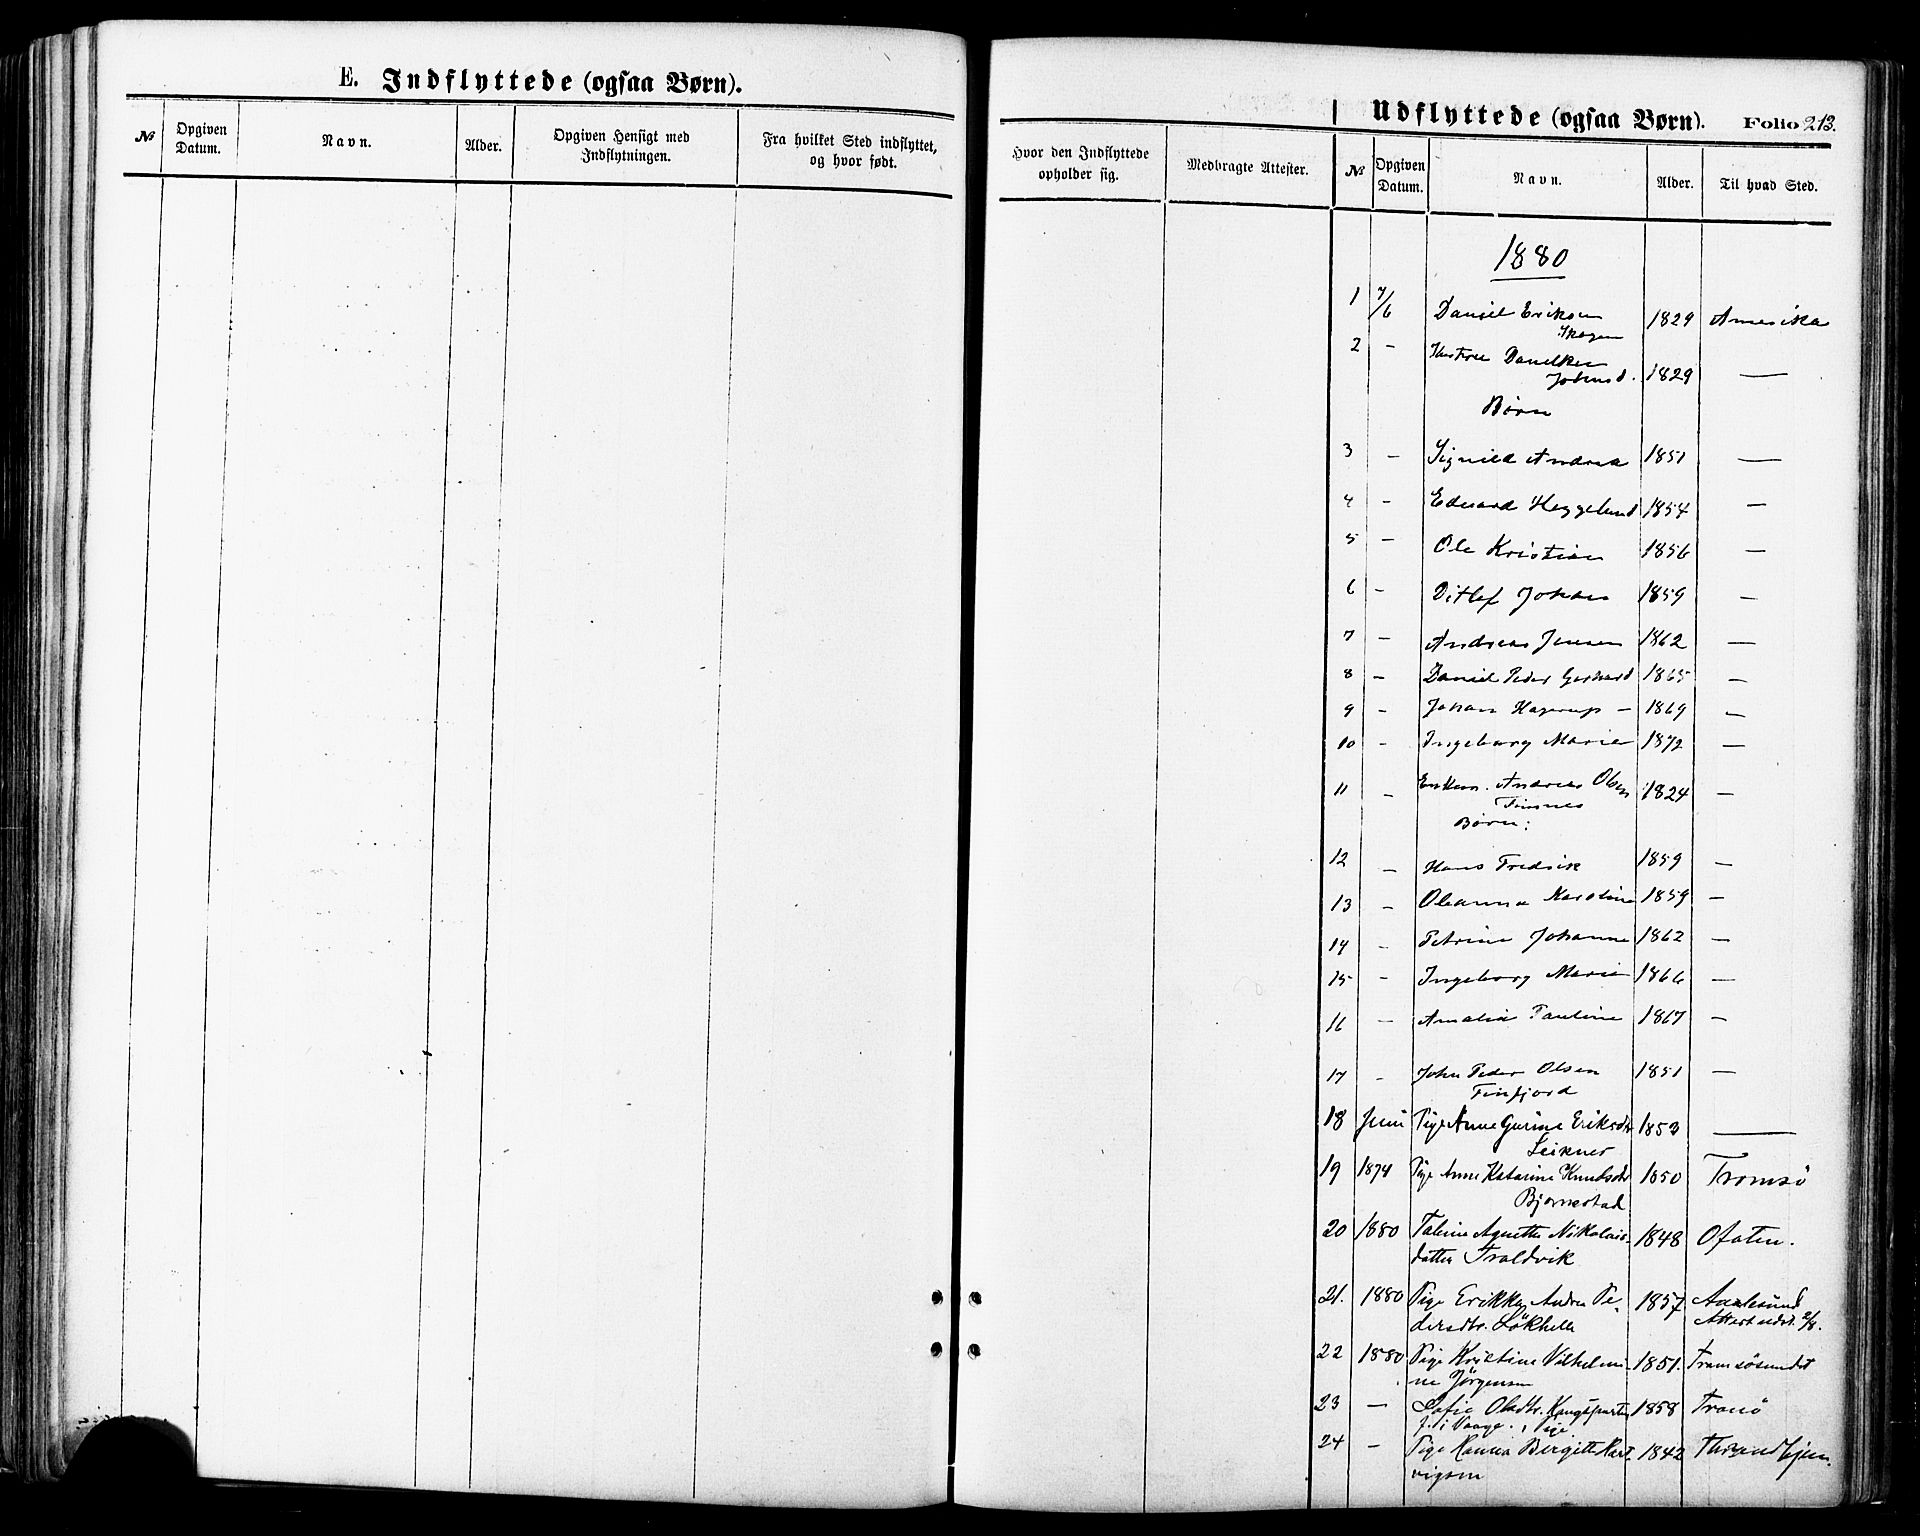 E. Indflyttede (ogsaa Børn).
№ Opgiven Datum. Navn. Alder. Opgiven Hensigt med Indflytningen. Fra hvilket Sted indflyttet, og hvor født.
Udflyttede (ogsaa Børn). Folio 213.
Hvor den Indflyttede opholder sig. Medbragte Attester. № Opgiven Datum. Navn. Alder. Til hvad Sted.
1880
1 7/6 Daniel Eriksen 1829 Amerika
Skogen
2 - Hustru
Johnsd. 1829 —
Børn
3 - Andrea 1851 —
4 - Eduard Heggelund 1854 —
5 - Ole Kristian 1856 —
6 - Ditlef Johan 1859 —
7 - Andreas Jensen 1862 —
8 - Daniel Peder Gerhard 1865 —
9 - Johan Hagerup - 1869 —
10 - Ingeborg Marie 1872 —
11 - Enkem. Andreas Olsen 1824 —
Finnes
Børn:
12 - Hans Fredrik 1859 —
13 - Oleanna Karoline 1859 —
14 - Petrine Johanne 1862 —
15 - Ingeborg Marie 1866 —
16 - Amalia Pauline 1867 —
17 - John Peder Olsen 1851 —
Finfjord
18 Juni Pige Anne Gurine Eriksdtr 1853 —
Leiknes
19 1874 Pige Anne Katarina Knudsdtr 1850 Tromsö
Bjørnestad
20 1880 Agnethe Nikolais- 1848 Ofoten.
datter Troldvik
21. 1880 Pige Erikka Andrea Pe- 1857 Aalesund
dersdtr. Lökhelle Attest udst. 2/8.
22 1880 Pige Kristine Vilhelmi- 1851. Tromsösundet
ne Jörgensen
23 — Sofie Olsdtr. 1858 Tranö
f. i Vaage. Pige
24 — Pige Hanna Bergitte Hart- 1842 Throndhjem.
vigsen